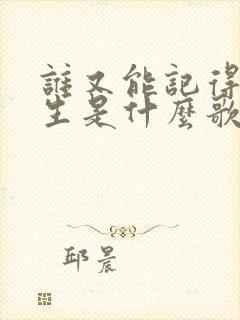 誰又能記得
生是什麼歌
邱晨